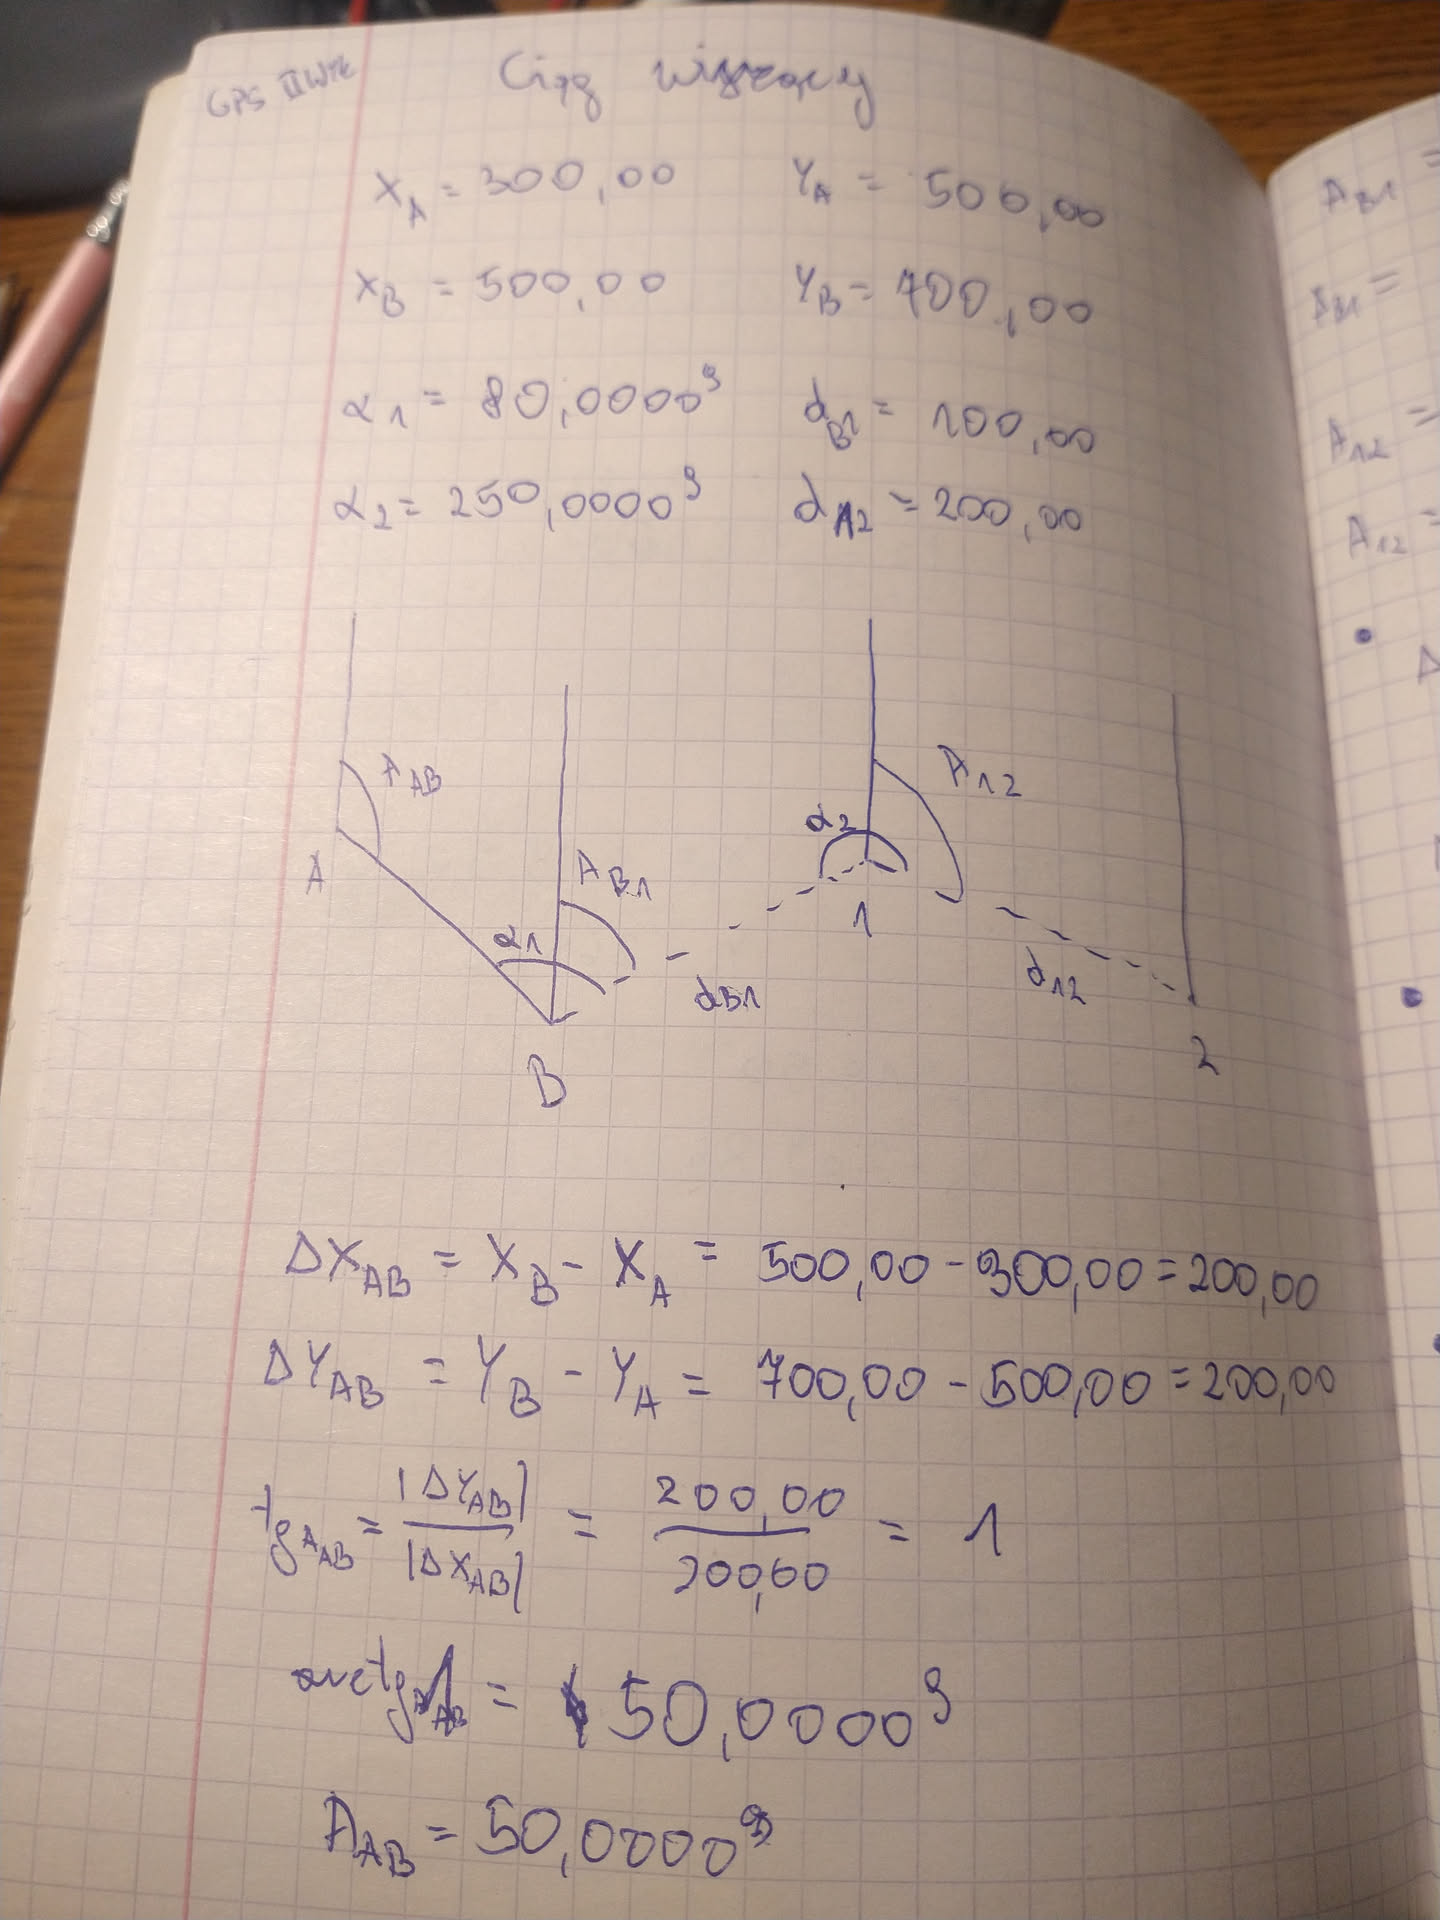 GPS II WTK
Ciąg wiszący
X_A = 300,00 Y_A = 500,00
X_B = 500,00 Y_B = 700,00
α1 = 80,0000^g d_B1 = 100,00
α2 = 250,0000^g d_A2 = 200,00
A_AB
A_12
α2
A
A_B1
1
α1
d_B1
d_12
B
2
ΔX_AB = X_B - X_A = 500,00 - 300,00 = 200,00
ΔY_AB = Y_B - Y_A = 700,00 - 500,00 = 200,00
tg A_AB = |ΔY_AB| / |ΔX_AB| = 200,00 / 200,00 = 1
arctg A_AB = 50,0000^g
A_AB = 50,0000^g
A_B1 =
A_B1 =
A_12 =
A_12 =
Δ